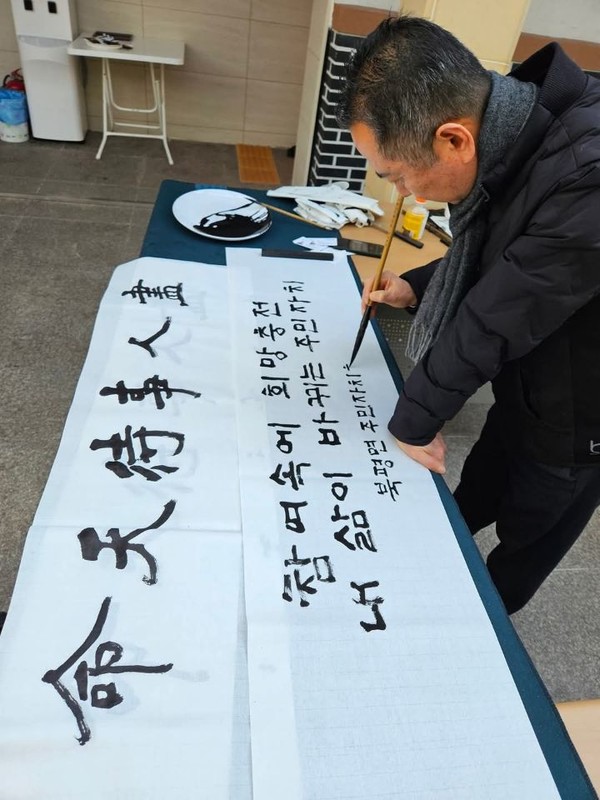 盡人事待天命
참여속에 희망충전
내 삶이 바뀌는 주민자치
북평면 주민자치